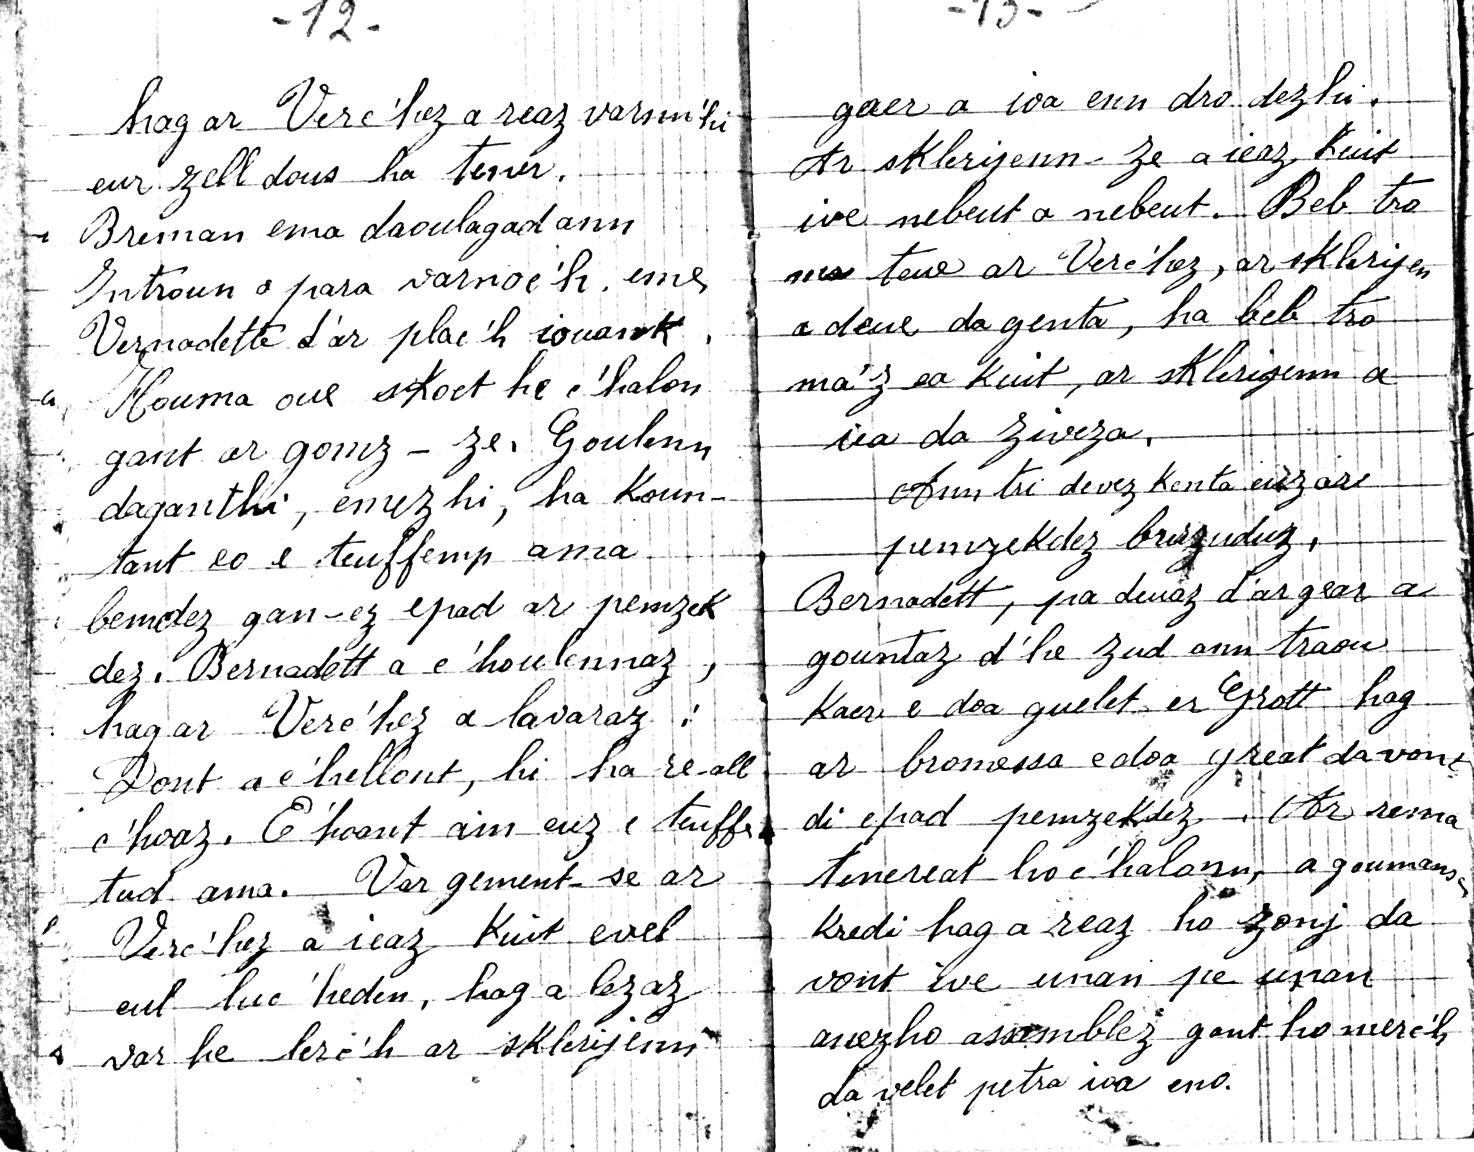 -12-
hag ar Verc'hez a reaz varnn'hi
eur zell dous ha tener.
Breman ema daoulagad ann
Introun o para varnoc'h. eme
Vernadette d'ar plac'h iouank.
Houma oue skoet he c'halon
gant ar gomz-ze. Goulenn
daganthi, emezhi, ha koun-
tant eo e teuffemp ama
bemdez gan-ez epad ar pemzek
dez. Bernadett a c'houlennaz,
hag ar Verc'hez a lavaraz :
Dont a c'hellont, hi ha re all
c'hoaz. C'hoant am euz e teuffe
tud ama. Var gement-se ar
Verc'hez a ieaz kuit evel
eul luc'heden, hag a lezaz
var he lerc'h ar sklerijenn
-13-
gaer a ioa enn dro dezhi.
Ar sklerijenn-ze a ieaz kuit
ive nebeut a nebeut. Beb tro
ma teue ar Verc'hez, ar sklerijen
a deue da genta, ha beb tro
ma'z ea kuit, ar sklerijenn a
iea da ziveza.
Ann tri devez kenta euz ar
pemzekdez burzuduz.
Bernadett, pa deuaz d'ar gear a
gountaz d'he zud ann traou
kaer e doa guelet er Grott hag
ar bromessa e doa great da vont
di epad pemzekdez. Ar rema
tenereat ho c'halonn, a goumansas
kredi hag a reaz ho zonj da
vont ive unan pe unan
anezho assemblez gant ho merc'h
da velet petra ioa eno.